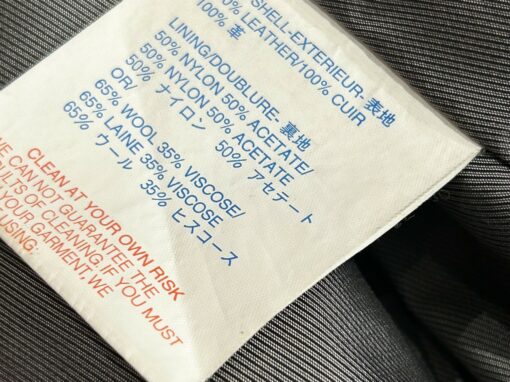 SHELL-EXTERIEUR-表地
LEATHER/100% CUIR
100% 革
LINING/DOUBLURE- 裏地
50% NYLON 50% ACETATE/
50% NYLON 50% ACETATE
50% ナイロン 50% アセテート
OR/
65% WOOL 35% VISCOSE/
65% LAINE 35% VISCOSE
65% ウール 35% ビスコース
CLEAN AT YOUR OWN RISK
WE CAN NOT GUARANTEE THE
OF CLEANING IF YOU MUST
YOUR GARMENT, WE
USING: